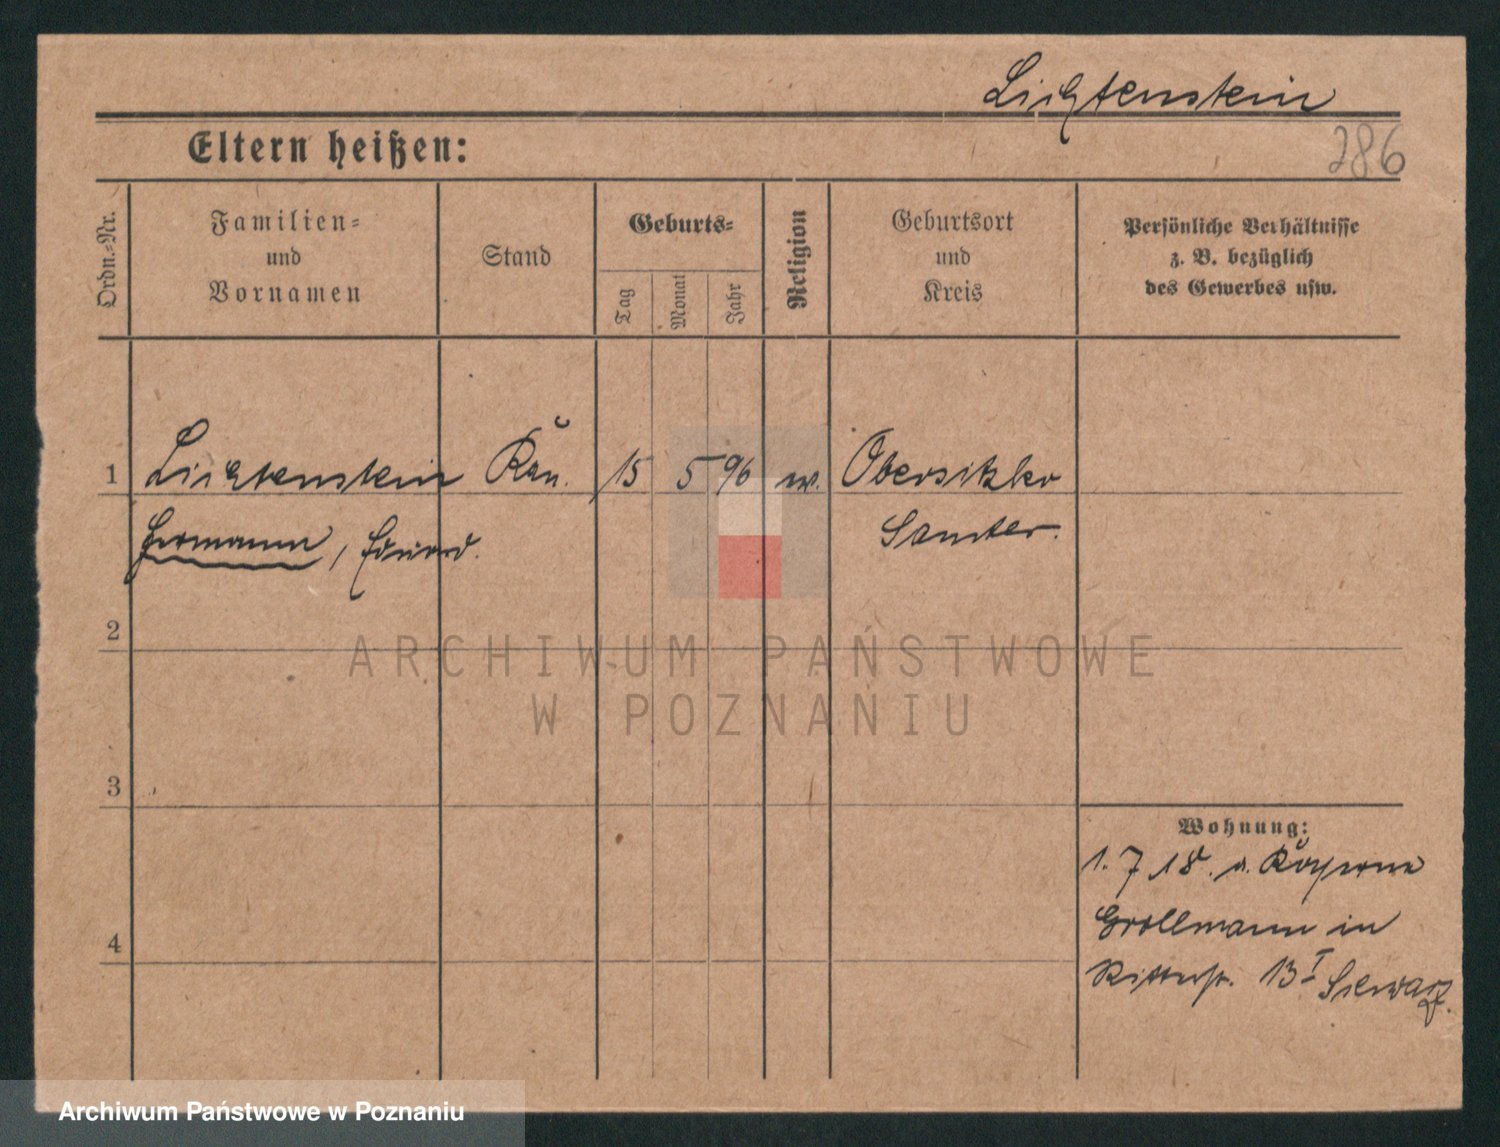 Lichtenstein
286
Eltern heißen:
Ordn.-Nr.
Familien-
und
Vornamen
Stand
Geburts-
Tag
Monat
Jahr
Religion
Geburtsort
und
Kreis
Persönliche Verhältnisse
z. B. bezüglich
des Gewerbes usw.
1 Lichtenstein 15 5 96 Obersitzko
Hermann, Eduard. Samter.
2
3
4
ARCHIWUM PAŃSTWOWE
W POZNANIU
Wohnung:
1. 7 18.
Grollmann in
Ritterstr. 13 I
Archiwum Państwowe w Poznaniu